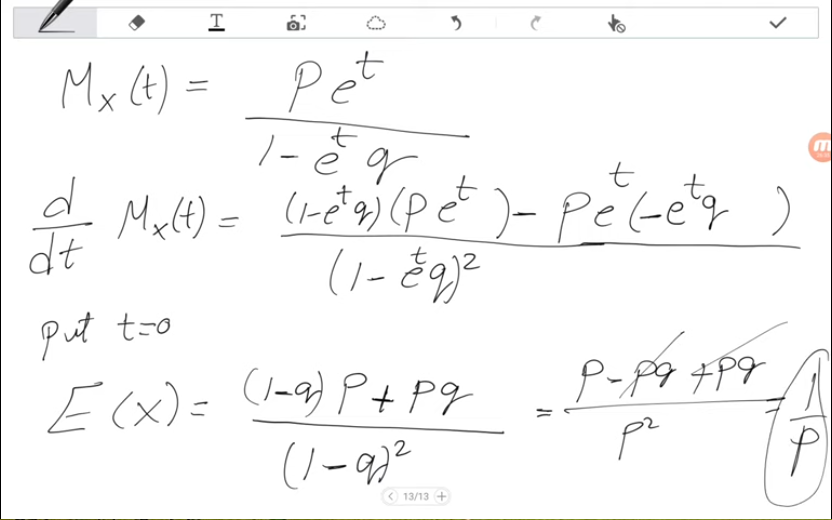 T
M_X(t) = Pe^t / (1 - e^t q)
d/dt M_X(t) = ((1-e^t q)(Pe^t) - Pe^t(-e^t q)) / (1 - e^t q)^2
put t=0
E(X) = ((1-q)P + Pq) / (1-q)^2 = (P - Pq + Pq) / P^2 = 1/P
13/13